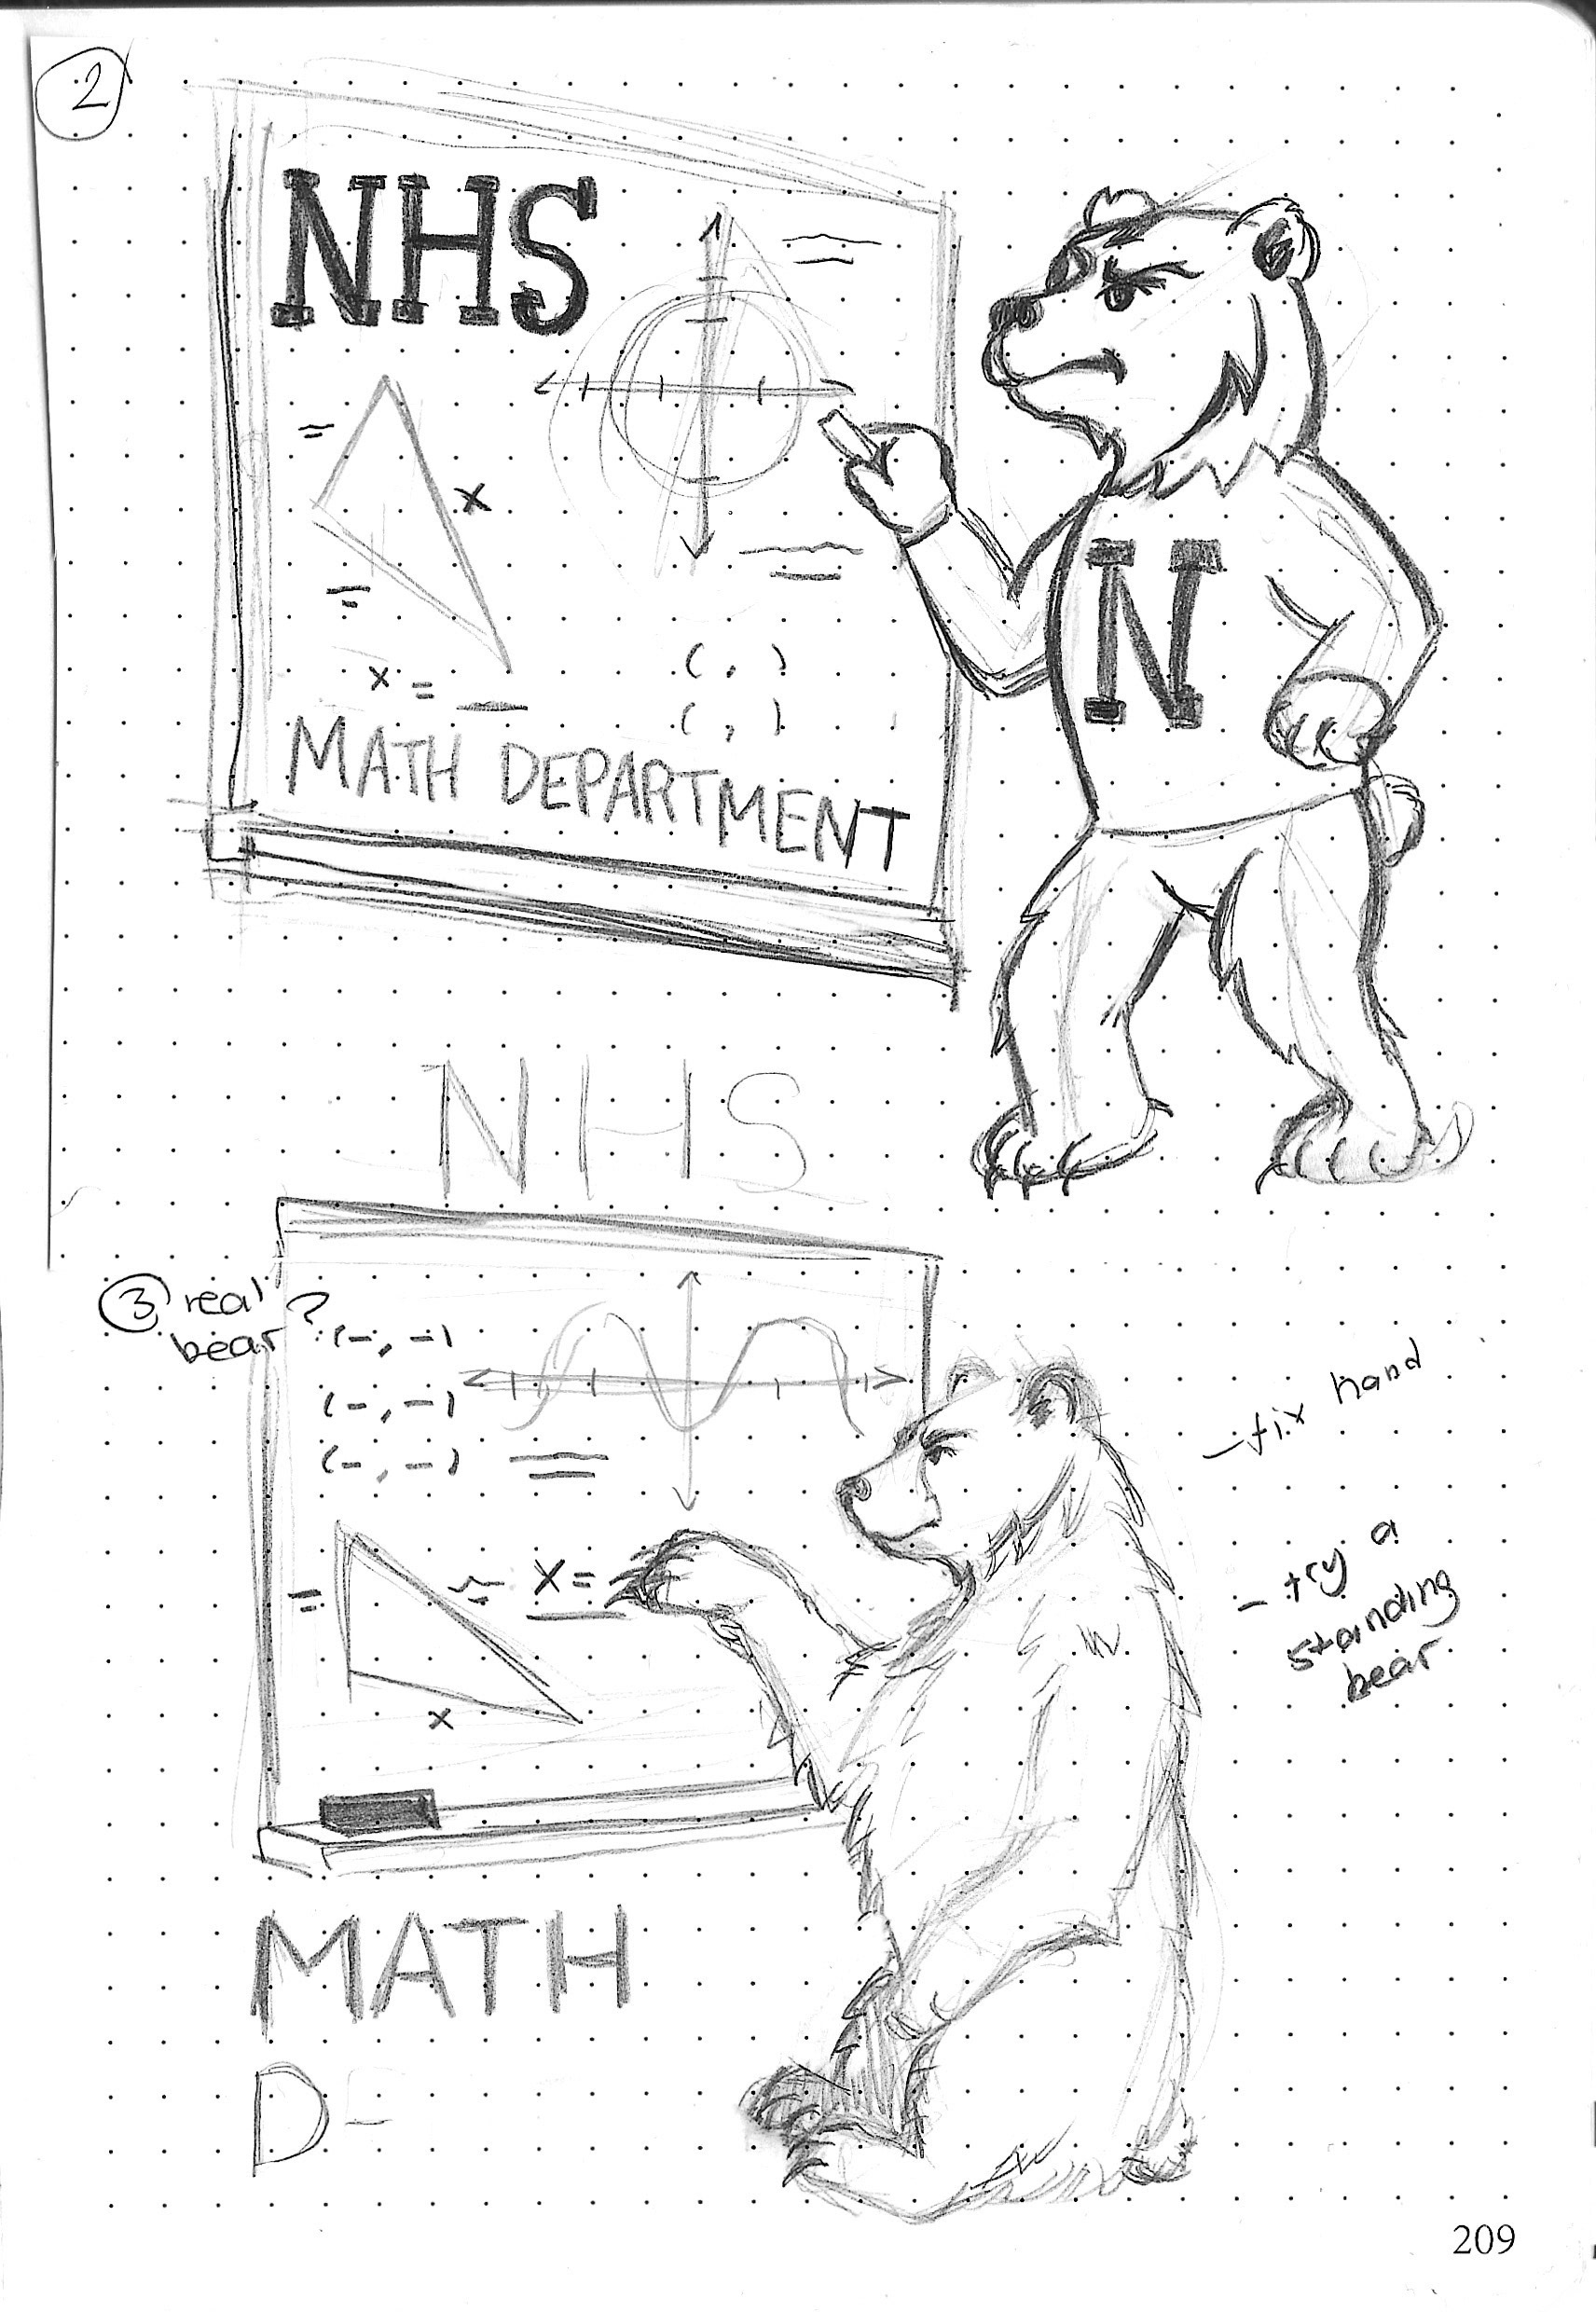 2
NHS
x
x = __
( , )
( , )
MATH DEPARTMENT
N
NHS
3 real
bear?
(-, -)
(-, -)
(-, -)
x=
x
- fix hand
- try a
standing
bear
MATH
D-
209